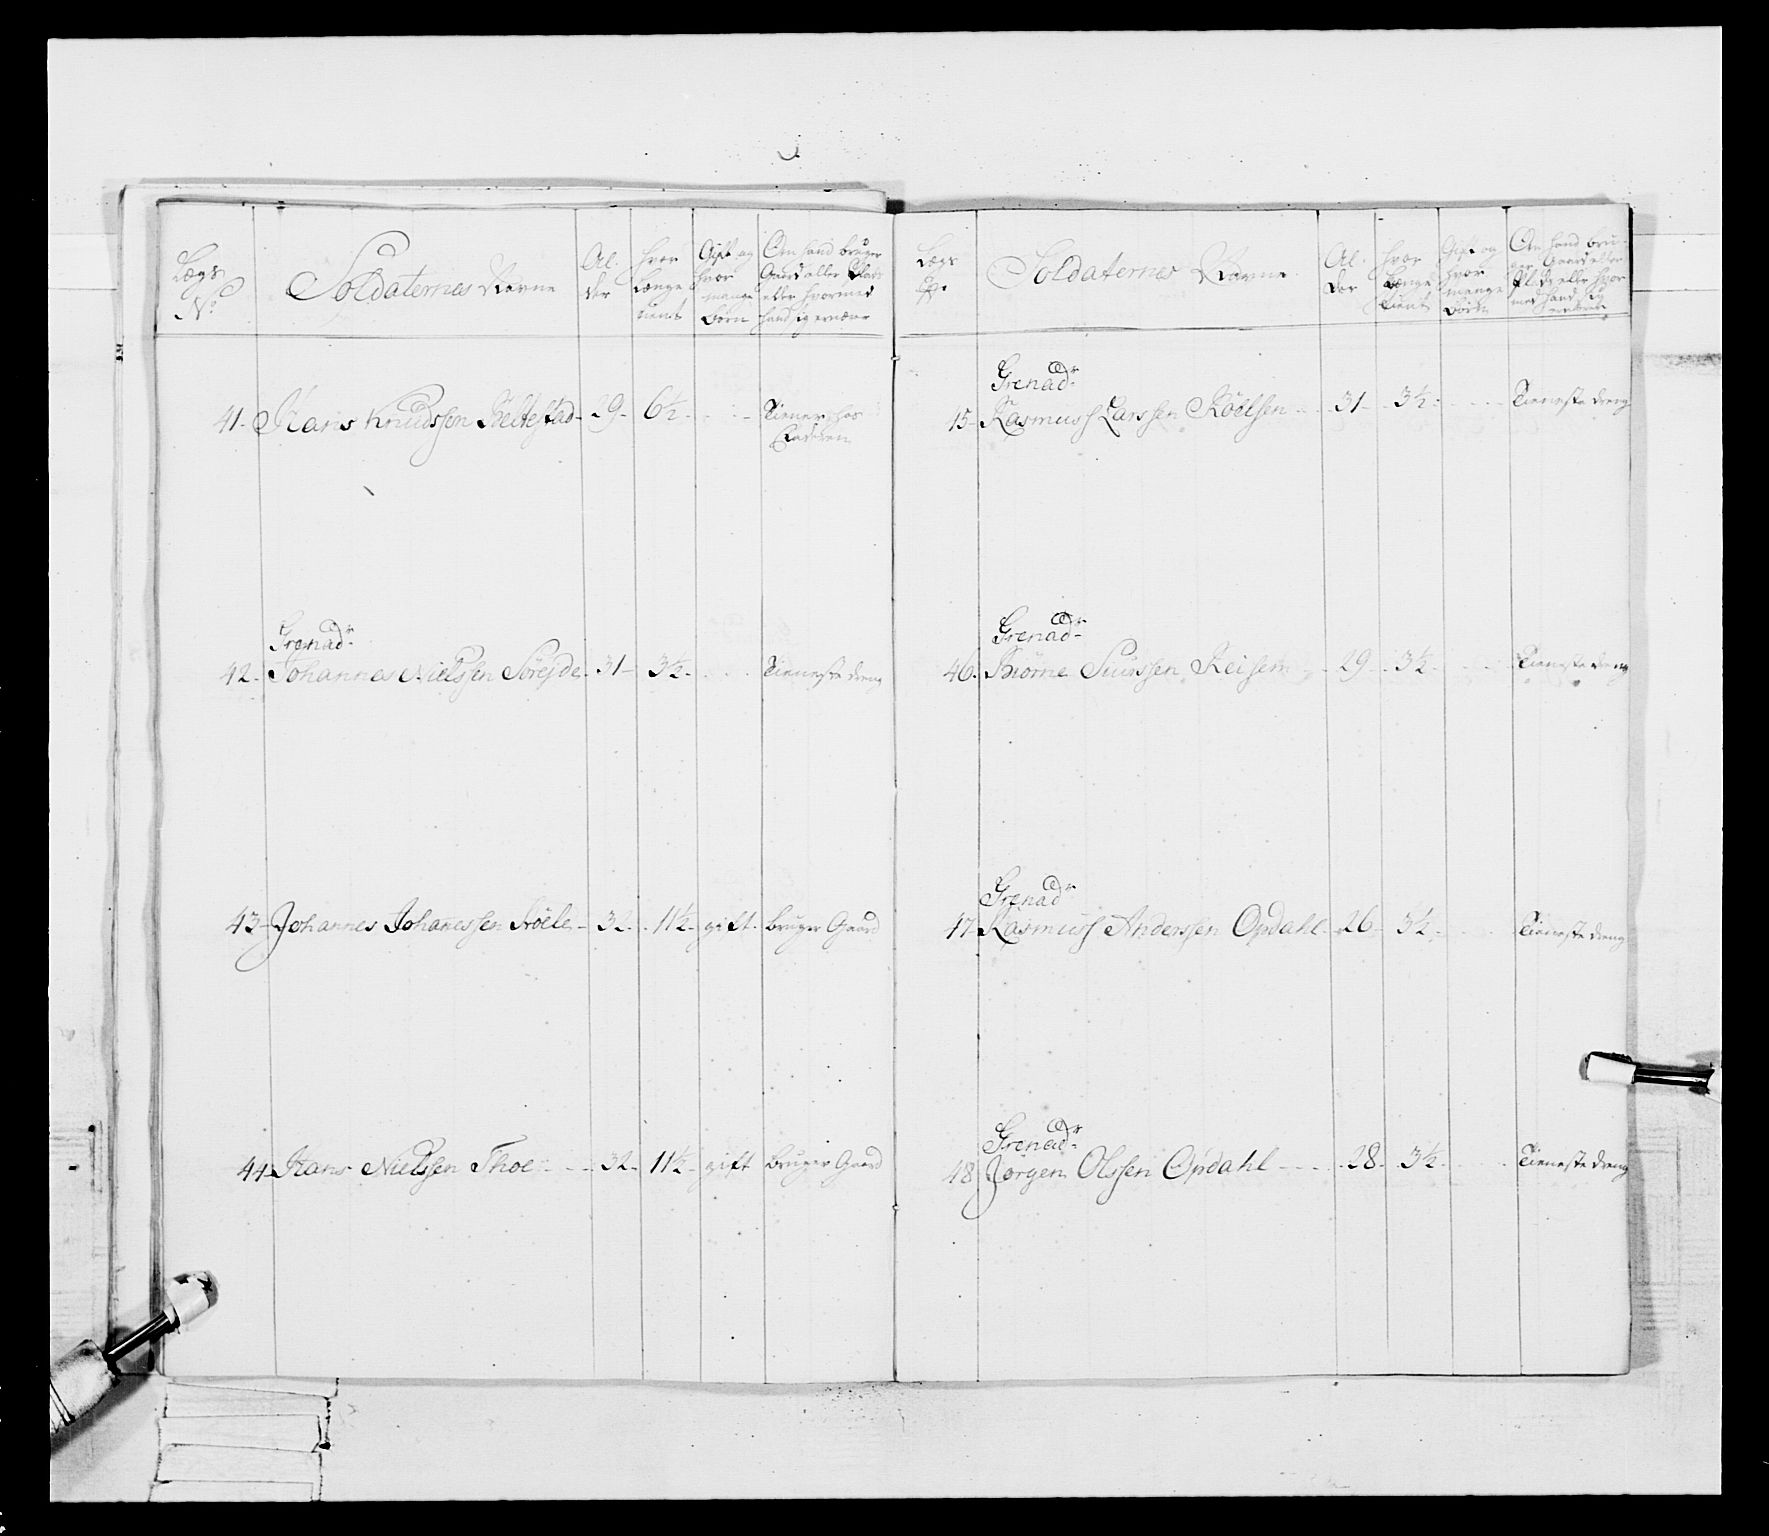 Lægs
No
Soldaternes Navne
Al-
der
hvor
længe
tient
Gift og
hvor
mange
børn
Om hand bruger
Gaard eller Plads
eller hvormed
hand sig ernær
41- Hans Knudssen - 29- 6½ - - - Tiener hos
Faderen
Grenadr
42- Johannes Nielssen Sörejde - 31- 3½- - - - Tieneste dreng
43- Johannes Johanessen Støele - 32- 11½- gift- bruger Gaard
44- Hans Nielssen Thoe - - - 32- 11½- gift bruger Gaard
Lægs
Soldaternes Navne
Al-
der
hvor
længe
tient
Gift og
hvor
mange
börn
Om hand bru-
ger Gaard eller
Plads eller hvor
med hand sig
ernærer
Grenadr
45- Rasmuss Larssen Röelsen - - 31- 3½- - - - Tieneste dreng
Grenadr
46- Biörne Siurssen Reisem - - 29- 3½- - - - Tieneste dreng
Grenadr
47- Rasmuss Anderssen Opdahl- 26- 3½- - - Tieneste dreng
Grenadr
48 Jörgen Olssen Opdahl - - - 28- 3½- - - Tieneste dreng